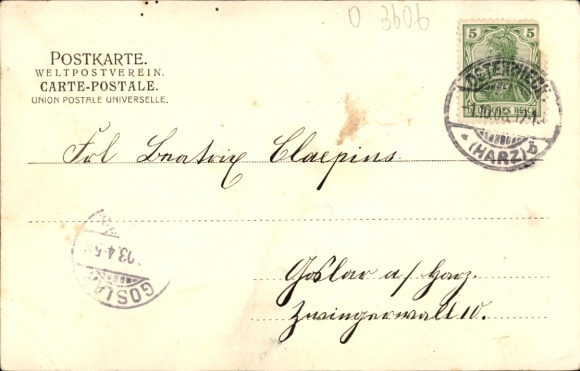 O 3606
POSTKARTE.
WELTPOSTVEREIN.
CARTE-POSTALE.
UNION POSTALE UNIVERSELLE.
5 5
DEUTSCHES REICH
OSTERWIECK
(HARZ) b
Frl Beatrix Claepius
GOSLAR
Goslar a/ Harz.
Zwingerwall 10.